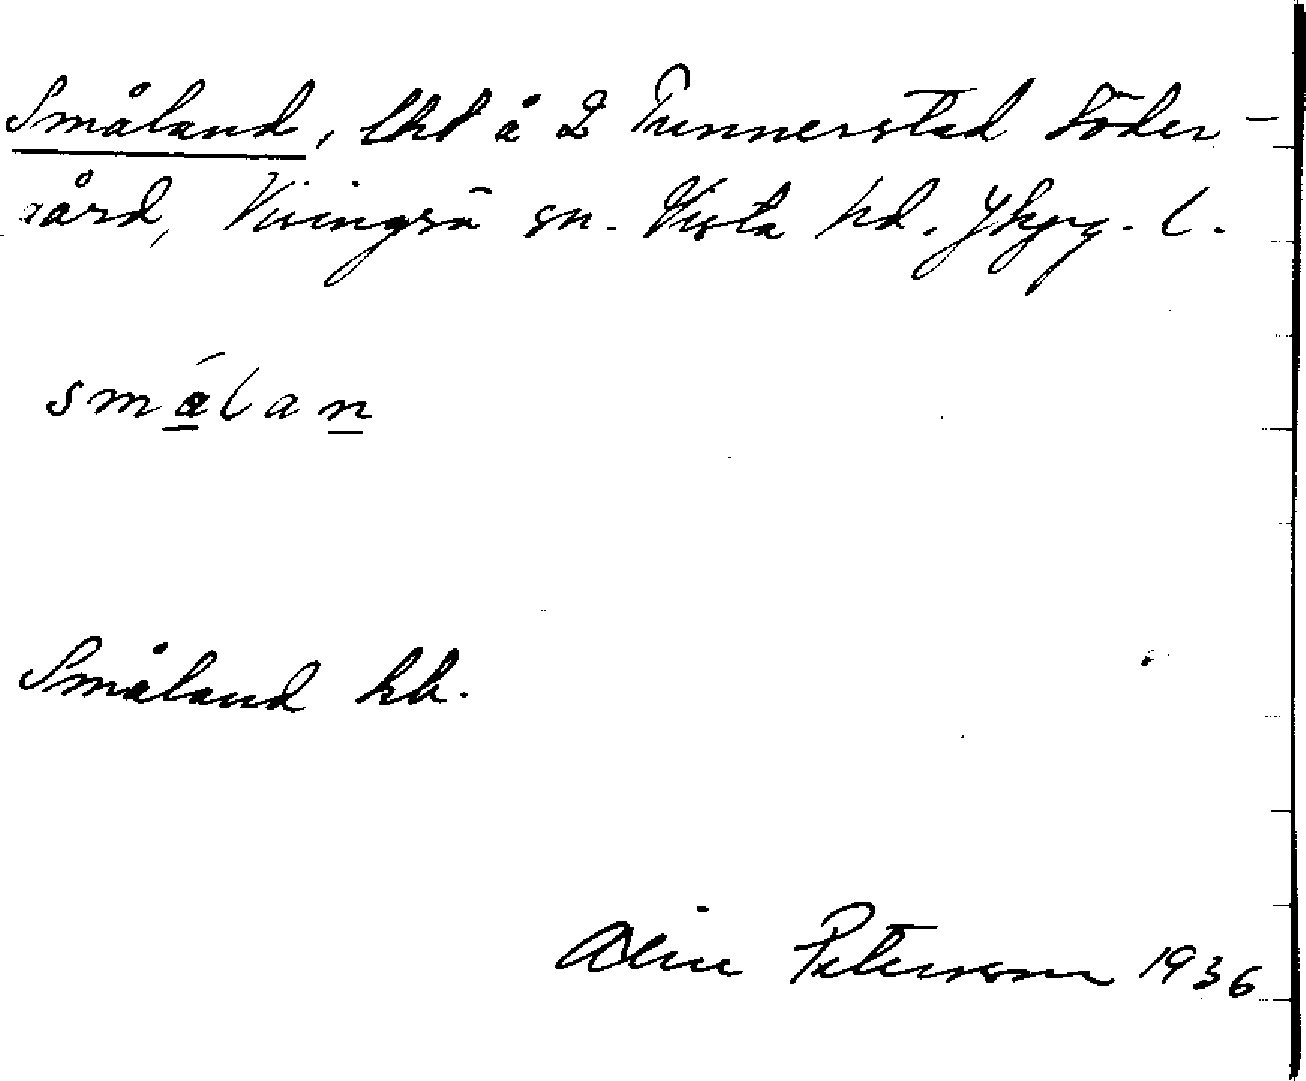 Småland, lht å 2 Tunnerstad Söder-
gård, Visingsö sn. Vista hd. Jkpg. l.
smálan
Småland hb.
Alin Petersson 1936